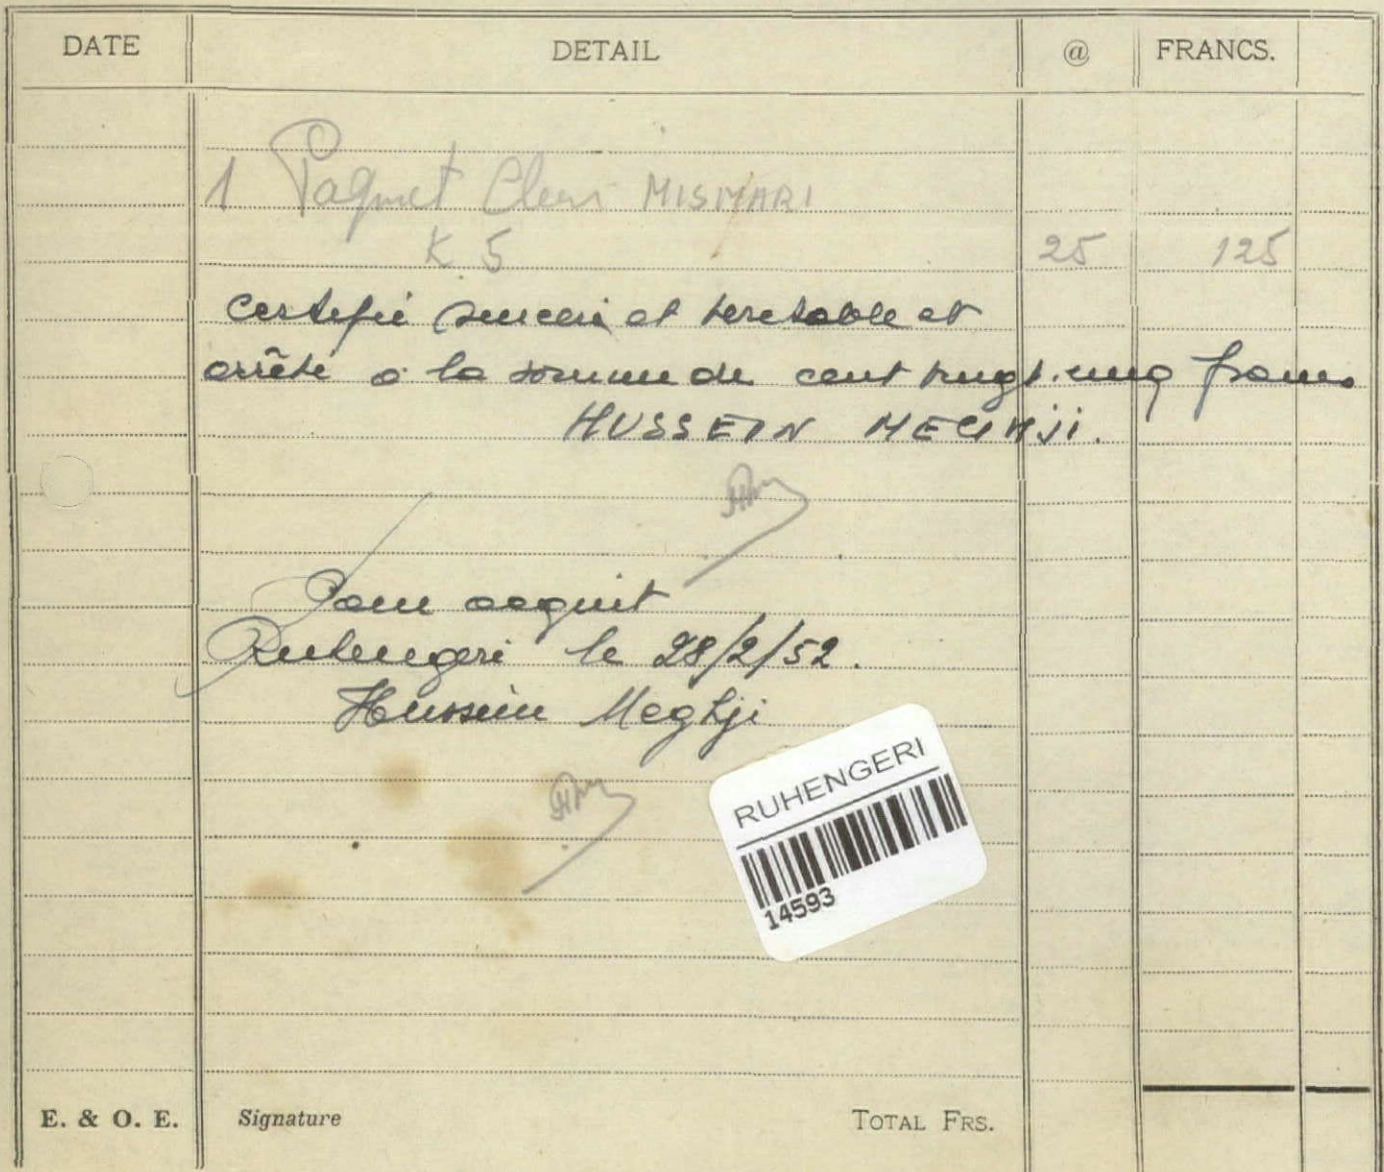 DATE DETAIL @ FRANCS.
1 Paquet Clous MISMARI
K 5 25 125
Certifié sincère et véritable et
arrêté à la somme de cent vingt cinq francs
HUSSEIN MEGHJI.
Pour acquit
Ruhengeri le 28/2/52.
Hussein Meghji
RUHENGERI
14593
E. & O. E. Signature TOTAL FRS.